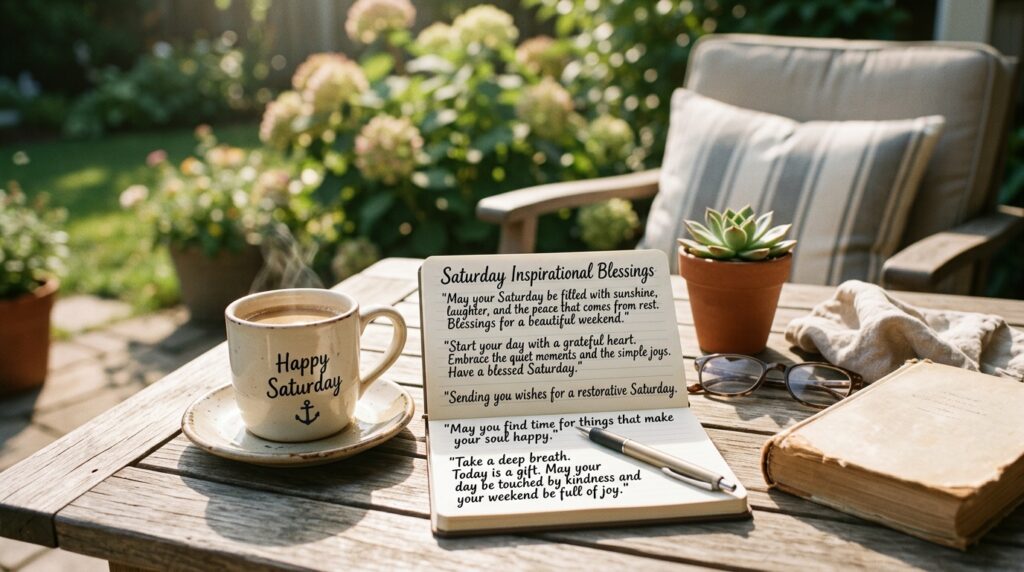 Happy
Saturday
Saturday Inspirational Blessings
"May your Saturday be filled with sunshine,
laughter, and the peace that comes from rest.
Blessings for a beautiful weekend."
"Start your day with a grateful heart.
Embrace the quiet moments and the simple joys.
Have a blessed Saturday."
"Sending you wishes for a restorative Saturday.
"May you find time for things that make
your soul happy."
"Take a deep breath.
Today is a gift. May your
day be touched by kindness and
your weekend be full of joy."